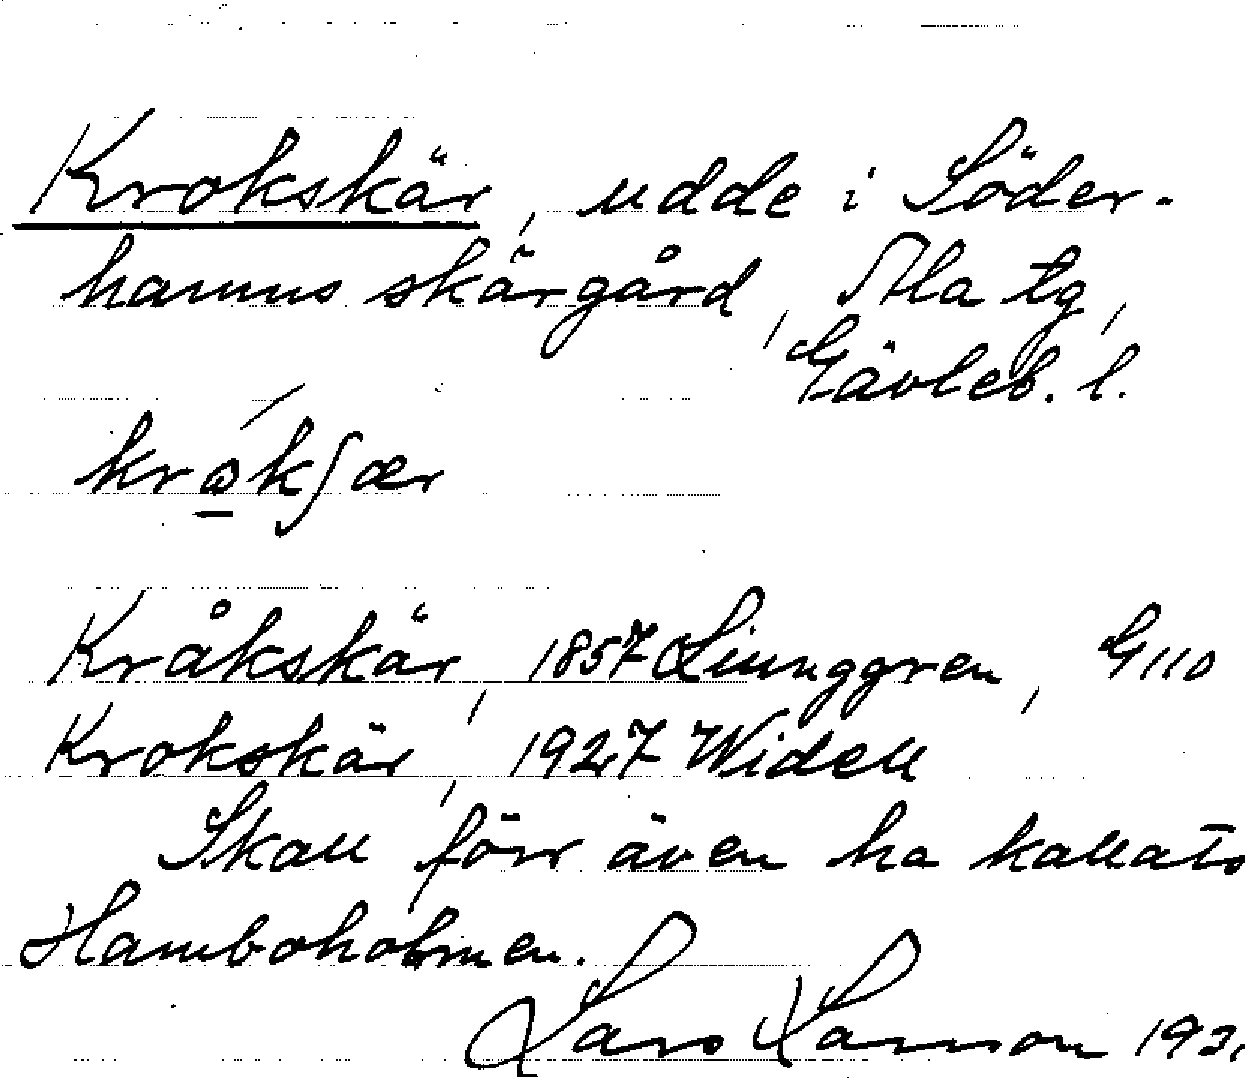 Krokskär, udde i Söder-
hamns skärgård, Ala tg,
Gävleb. l.
Kråkskär, 1857 Ljunggren, G110
Krokskär, 1927 Widell
Skall förr även ha kallats
Hamboholmen.
Lars Larsson